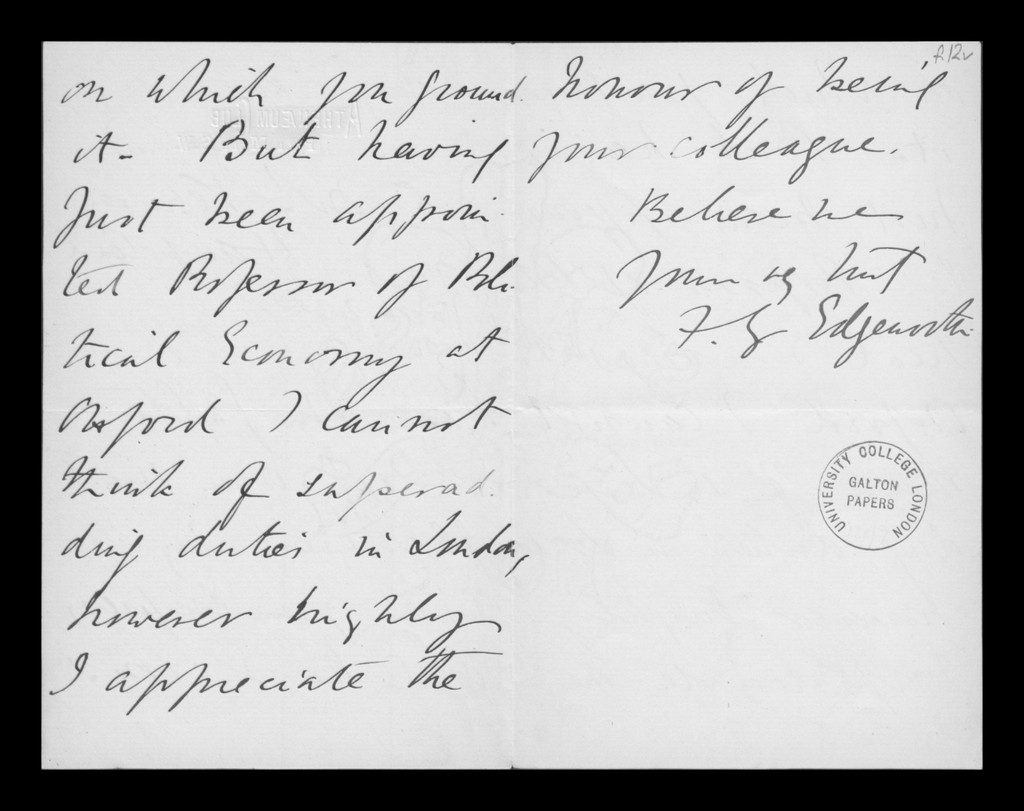 on which you ground
it - But having
just been appoin
ted Professor of Poli-
tical Economy at
Oxford I cannot
think of superad
ding duties in London,
however highly
I appreciate the
f.12v
honour of being
your colleague.
Believe me
Yours very truly
F. Y. Edgeworth
UNIVERSITY COLLEGE LONDON
GALTON
PAPERS